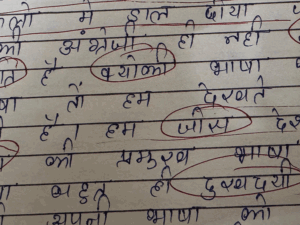 में डाल दीया
की अंग्रेजी ही नही
है क्योकी भाषा
तों हम देखते
है। हम जीस दे
की प्रमुख भाषा
बहुत ही दुखदयी
अपनी भाषा की